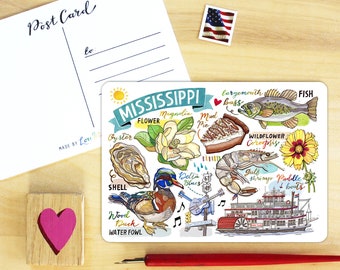 Post Card
to
MADE BY
MISSISSIPPI
FLOWER
Magnolia
Mud
Pie
Largemouth
Bass
FISH
Oyster
SHELL
WILDFLOWER
Coreopsis
Delta
Blues
Gulf
Shrimp
Paddle
boats
Wood
Duck
WATER FOWL